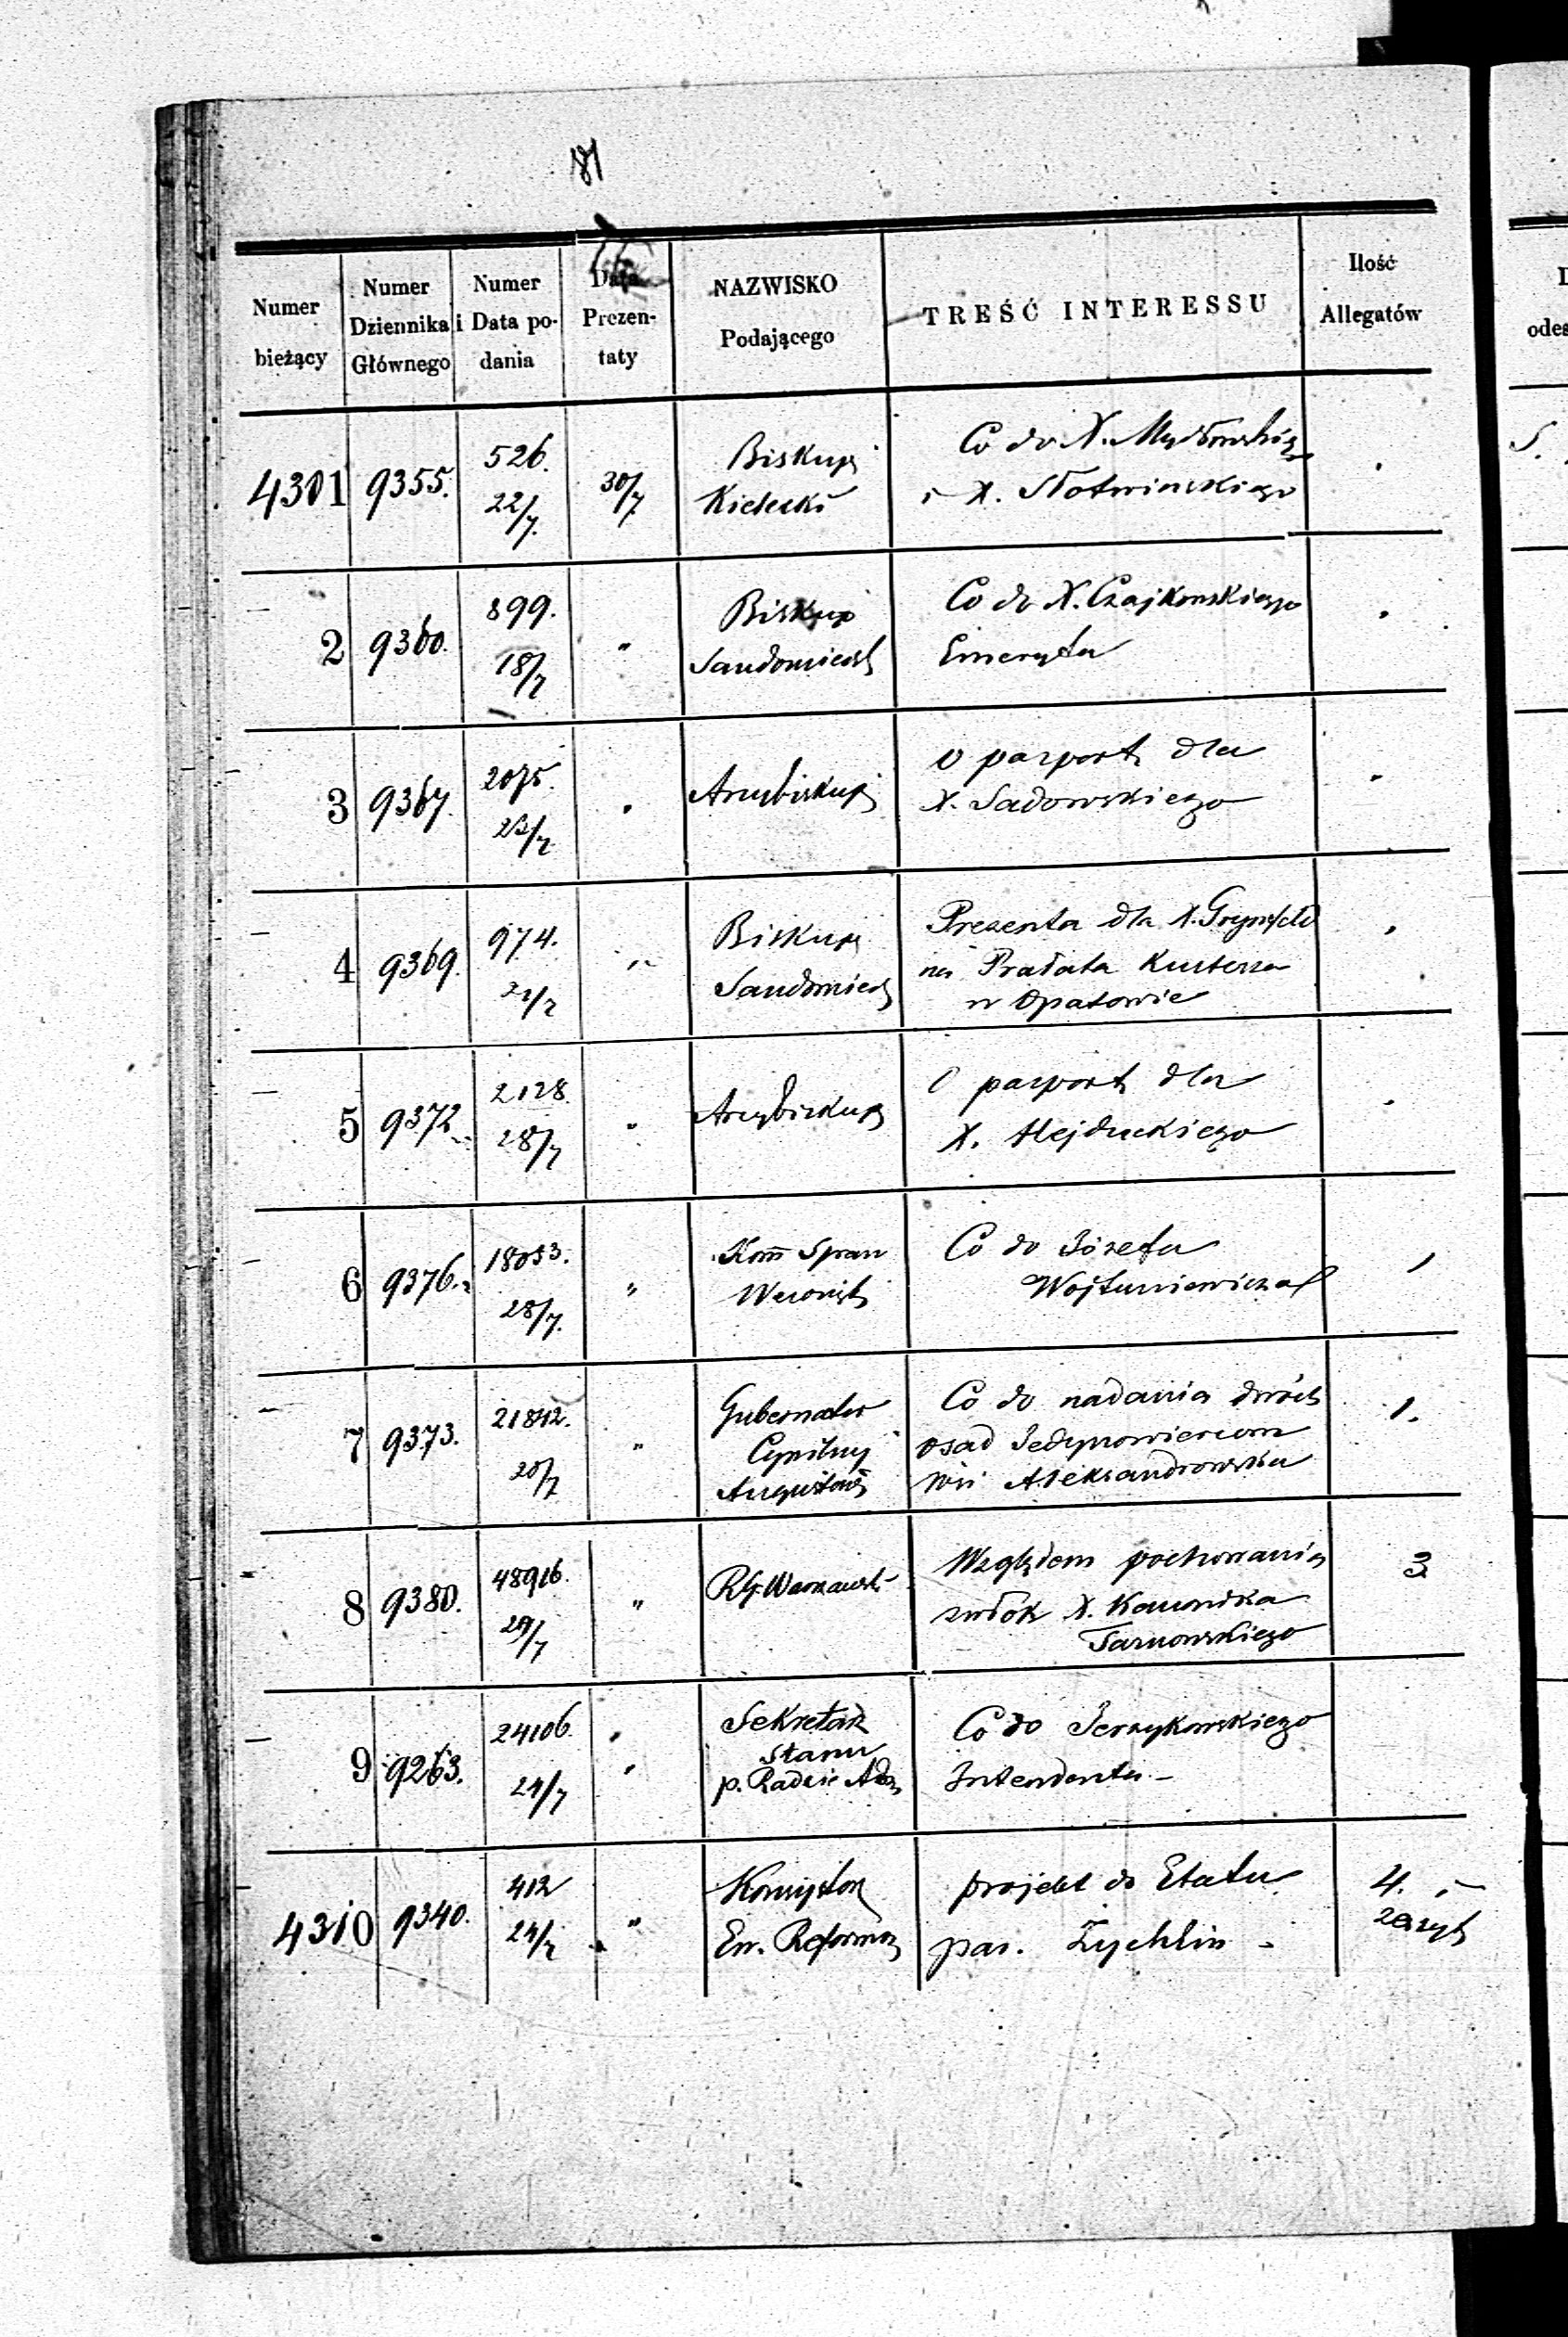 81
Numer bieżący | Numer Dziennika Głównego | Numer i Data podania | Data Prezentaty | NAZWISKO Podającego | TREŚĆ INTERESSU | Ilość Allegatów
4301 9355. 526. 22/7. 30/7. Biskup Kielecki
Co do X.
i X. Słotwinskiego
2 9360. 899. 18/7 " Biskup Sandomiersk
Co do X. Czajkowskiego
Emeryta
3 9367. 2075. 23/7. Arcybiskup
O paszport dla
X. Sadowskiego
4 9369. 974. 22/7 " Biskup Sandomier
Prezenta dla X.
na Prałata Kustosza
w Opatowie
5 9372. 2128. 28/7 " Arcybiskup
O paszport dla
X.
6 9376. 18053. 28/7. " Kom Spraw
Co do Józefa
Wojtuniewicza 1
7 9373. 21812. 20/7 " Gubernator Cywilny Augustows
Co do nadania dwóch 1.
osad Jedynowiercom
wsi Aleksandrowska
8 9380. 48916. 29/7 " RG. Warszawski
Względem pochowania 3
zwłok X. Kanonika
Tarnowskiego
9 9263. 24106. 24/7 " Sekretarz Stanu p. Radzie Adm
Co do Jerzykowskiego
Intendenta -
4310 9340. 412 24/7 " Konsystorz Ew. Reformow
projekt do Etatu 4.
par. Żychlin - zeszyt